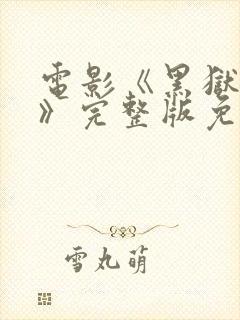 電影《黑獄
》完整版免
雪丸萌